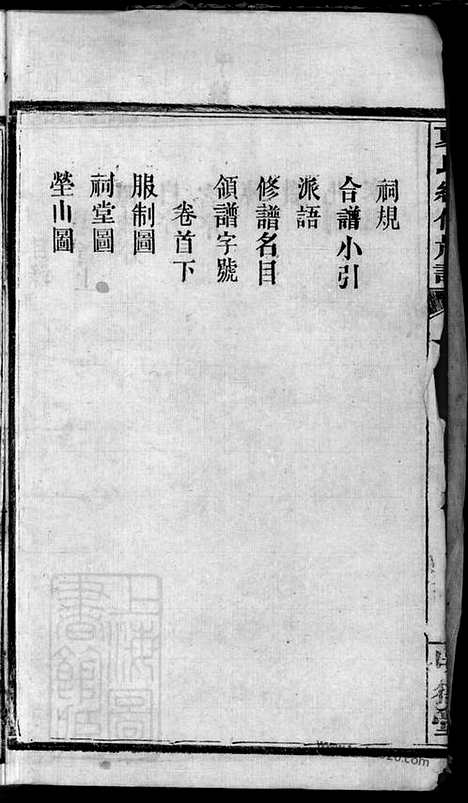 祠規
合譜小引
派語
修譜名目
領譜字號
卷首下
服制圖
祠堂圖
塋山圖
上海圖
書館